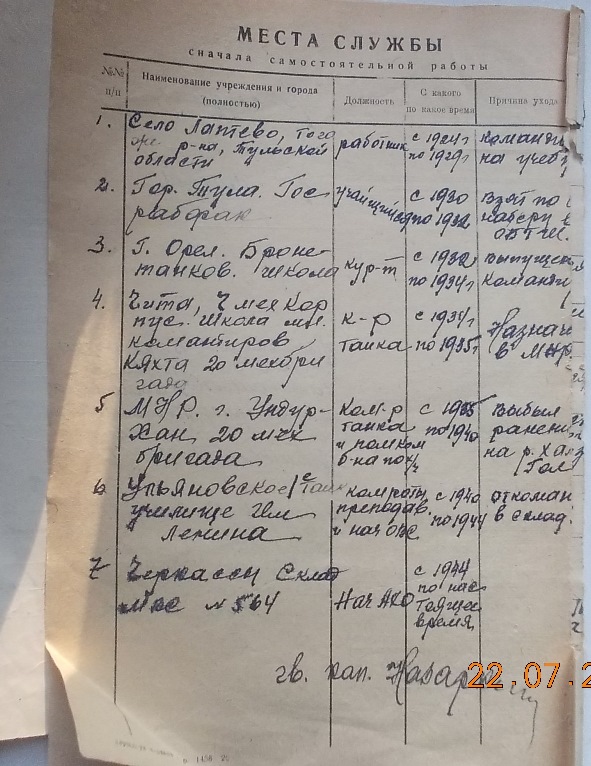 МЕСТА СЛУЖБЫ
сначала самостоятельной работы
№№ п/п
Наименование учреждения и города (полностью)
Должность
С какого по какое время
Причина ухода
1. Село Лаптево, того
же р-на, Тульской
области
работник
с 1924 г
по 1929 г
команди
на учеб
2. Гор. Тула. Гос
рабфак
учащийся
с 1930
по 1932
взят по
набору в
ОБТШ.
3. Г. Орел. Броне-
танков. школа
кур-т
с 1932
по 1934 г
выпущен
команди
4. Чита, Чмех Кор
пус. школа мл.
командиров
Кяхта 20 мехбри
гада
к-р
танка
с 1934 г
по 1935 г
Назнач
в МНР
5 МНР. г. Ундур-
Хан, 20 мех
бригада
Ком-р
танка
и помком
б-на по х/ч
с 1935
по 1940
выбыл
ранени
на р. Хал
Гол
6 Ульяновское танк
училище Им
Ленина
ком роты,
преподав.
и нач ОВС
с 1940
по 1944
откоман
в склад.
7 Черкассы Склад
№ 564
Нач АХО
с 1944
по нас
тоящее
время
гв. кап.
22.07.2